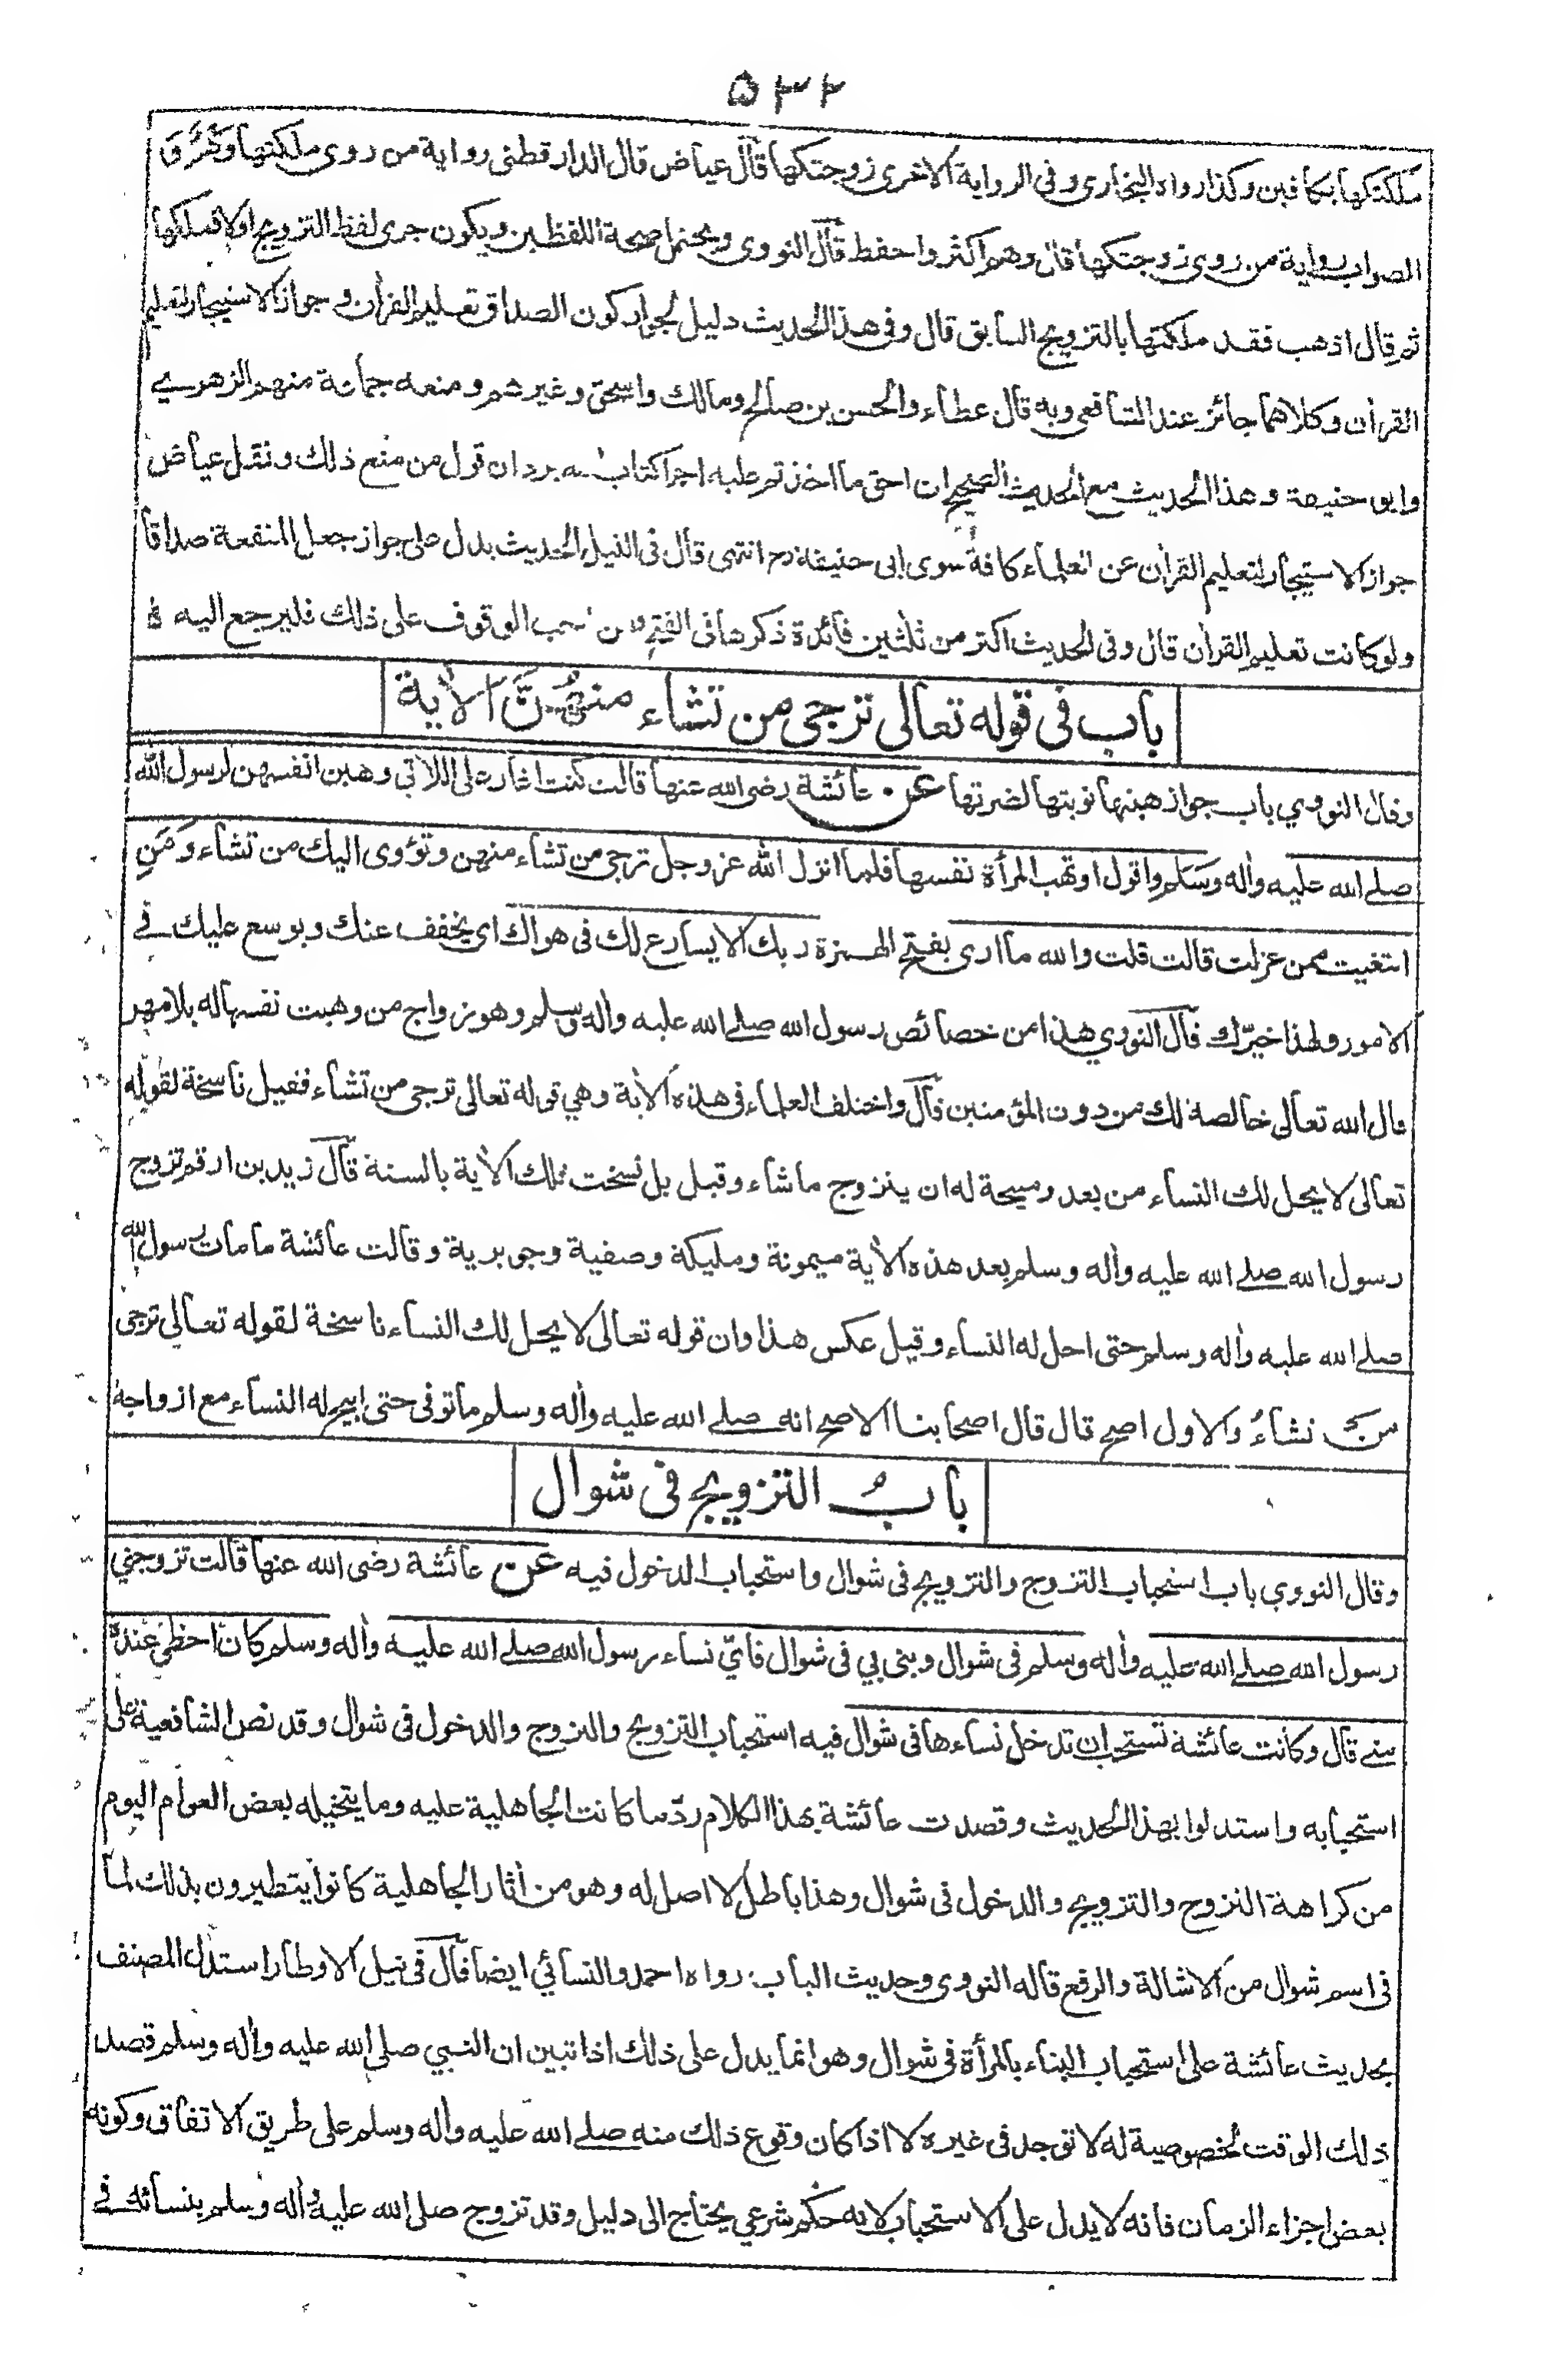 ۵۳۲
ملكتكها بكافين وكذا رواه البخاري وفى الرواية الاخرى زوجتكها قال عياض قال الدارقطنى رواية من روى ملكتها وَهْمٌ وَ
الصواب رواية من روى زوجتكها قال وهم اكثر واحفظ قال النووى ويحتمل صحة اللفظين ويكون جرى لفظ التزويج اولا فملكها
ثم قال اذهب فقد ملكتها بالتزويج السابق قال وفى هذا الحديث دليل لجواز كون الصداق تعليم القرأن وجواز الاستيجار لتعليم
القرأن وكلاهما جائز عند الشافعى وبه قال عطاء والحسن بن صالح ومالك واسحق وغيرهم ومنعه جماعة منهم الزهرى
وابو حنيفة وهذا الحديث مع الحديث الصحيح ان احق ما اخذتم عليه اجرا كتاب الله يردان قول من منع ذلك ونقل عياض
جواز الاستيجار لتعليم القرأن عن العلماء كافة سوى ابى حنيفة رح انتهى قال فى النيل الحديث يدل على جواز جعل المنفعة صداقا
ولو كانت تعليم القرأن قال وفى الحديث اكثر من ثلثين فائدة ذكرها فى الفتح ومن احب الوقوف على ذلك فليرجع اليه
باب فى قوله تعالى ترجى من تشاء منهن الأية
وقال النووي باب جواز هبتها نوبتها لضرتها عن عائشة رضى الله عنها قالت كنت اغار على اللاتي وهبن انفسهن لرسول الله
صلى الله عليه واٰله وسلم واقول اوتهب المرأة نفسها فلما انزل الله عز وجل ترجى من تشاء منهن وتؤوى اليك من تشاء ومَنِ
ابتغيت ممن عزلت قالت قلت والله ما ارى بفتح الهمزة ربك الا يسارع لك فى هواك اى يخفف عنك ويوسع عليك فى
الامور ولهذا خيّرك قال النووي هذا من خصائص رسول الله صلى الله عليه واٰله وسلم وهو زواج من وهبت نفسها له بلا مهر
قال الله تعالى خالصة لك من دون المؤمنين قال واختلف العلماء فى هذه الأية وهي قوله تعالى ترجى من تشاء فقيل ناسخة لقوله
تعالى لا يحل لك النساء من بعد ومبيحة له ان يتزوج ما شاء وقيل بل نسخت تلك الأية بالسنة قال زيد بن ارقم تزوج
رسول الله صلى الله عليه واٰله وسلم بعد هذه الأية ميمونة ومليكة وصفية وجويرية وقالت عائشة ما مات رسول الله
صلى الله عليه واٰله وسلم حتى احل له النساء وقيل عكس هذا وان قوله تعالى لا يحل لك النساء ناسخة لقوله تعالى ترجى
من تشاءُ والاول اصح قال قال اصحابنا الاصح انه صلى الله عليه واٰله وسلم ما توفى حتى ابيح له النساء مع ازواجه
بابُ التزويج فى شوال
وقال النووي باب استحباب التزوج والتزويج فى شوال واستحباب الدخول فيه عن عائشة رضى الله عنها قالت تزوجني
رسول الله صلى الله عليه واٰله وسلم فى شوال وبنى بي فى شوال فايّ نساء رسول الله صلى الله عليه واٰله وسلم كان احظى عنده
منى قال وكانت عائشة تستحب ان تدخل نساءها فى شوال فيه استحباب التزويج والتزوج والدخول فى شوال وقد نص الشافعية على
استحبابه واستدلوا بهذا الحديث وقصدت عائشة بهذا الكلام ردّ ما كانت الجاهلية عليه وما يتخيله بعض العوام اليوم
من كراهة التزوج والتزويج والدخول فى شوال وهذا باطل لا اصل له وهو من اٰثار الجاهلية كانوا يتطيرون بذلك لما
فى اسم شوال من الاشالة والرفع قاله النووى وحديث الباب رواه احمد والنسائي ايضا قال فى نيل الاوطار استدل المصنف
بحديث عائشة على استحباب البناء بالمرأة فى شوال وهو انما يدل على ذلك اذا تبين ان النبي صلى الله عليه واٰله وسلم قصد
ذلك الوقت لخصوصية له لا توجد فى غيره لا اذا كان وقوع ذلك منه صلى الله عليه واٰله وسلم على طريق الاتفاق وكونه
بعض اجزاء الزمان فانه لا يدل على الاستحباب لانه حكم شرعي يحتاج الى دليل وقد تزوج صلى الله عليه واٰله وسلم بنسائه فى